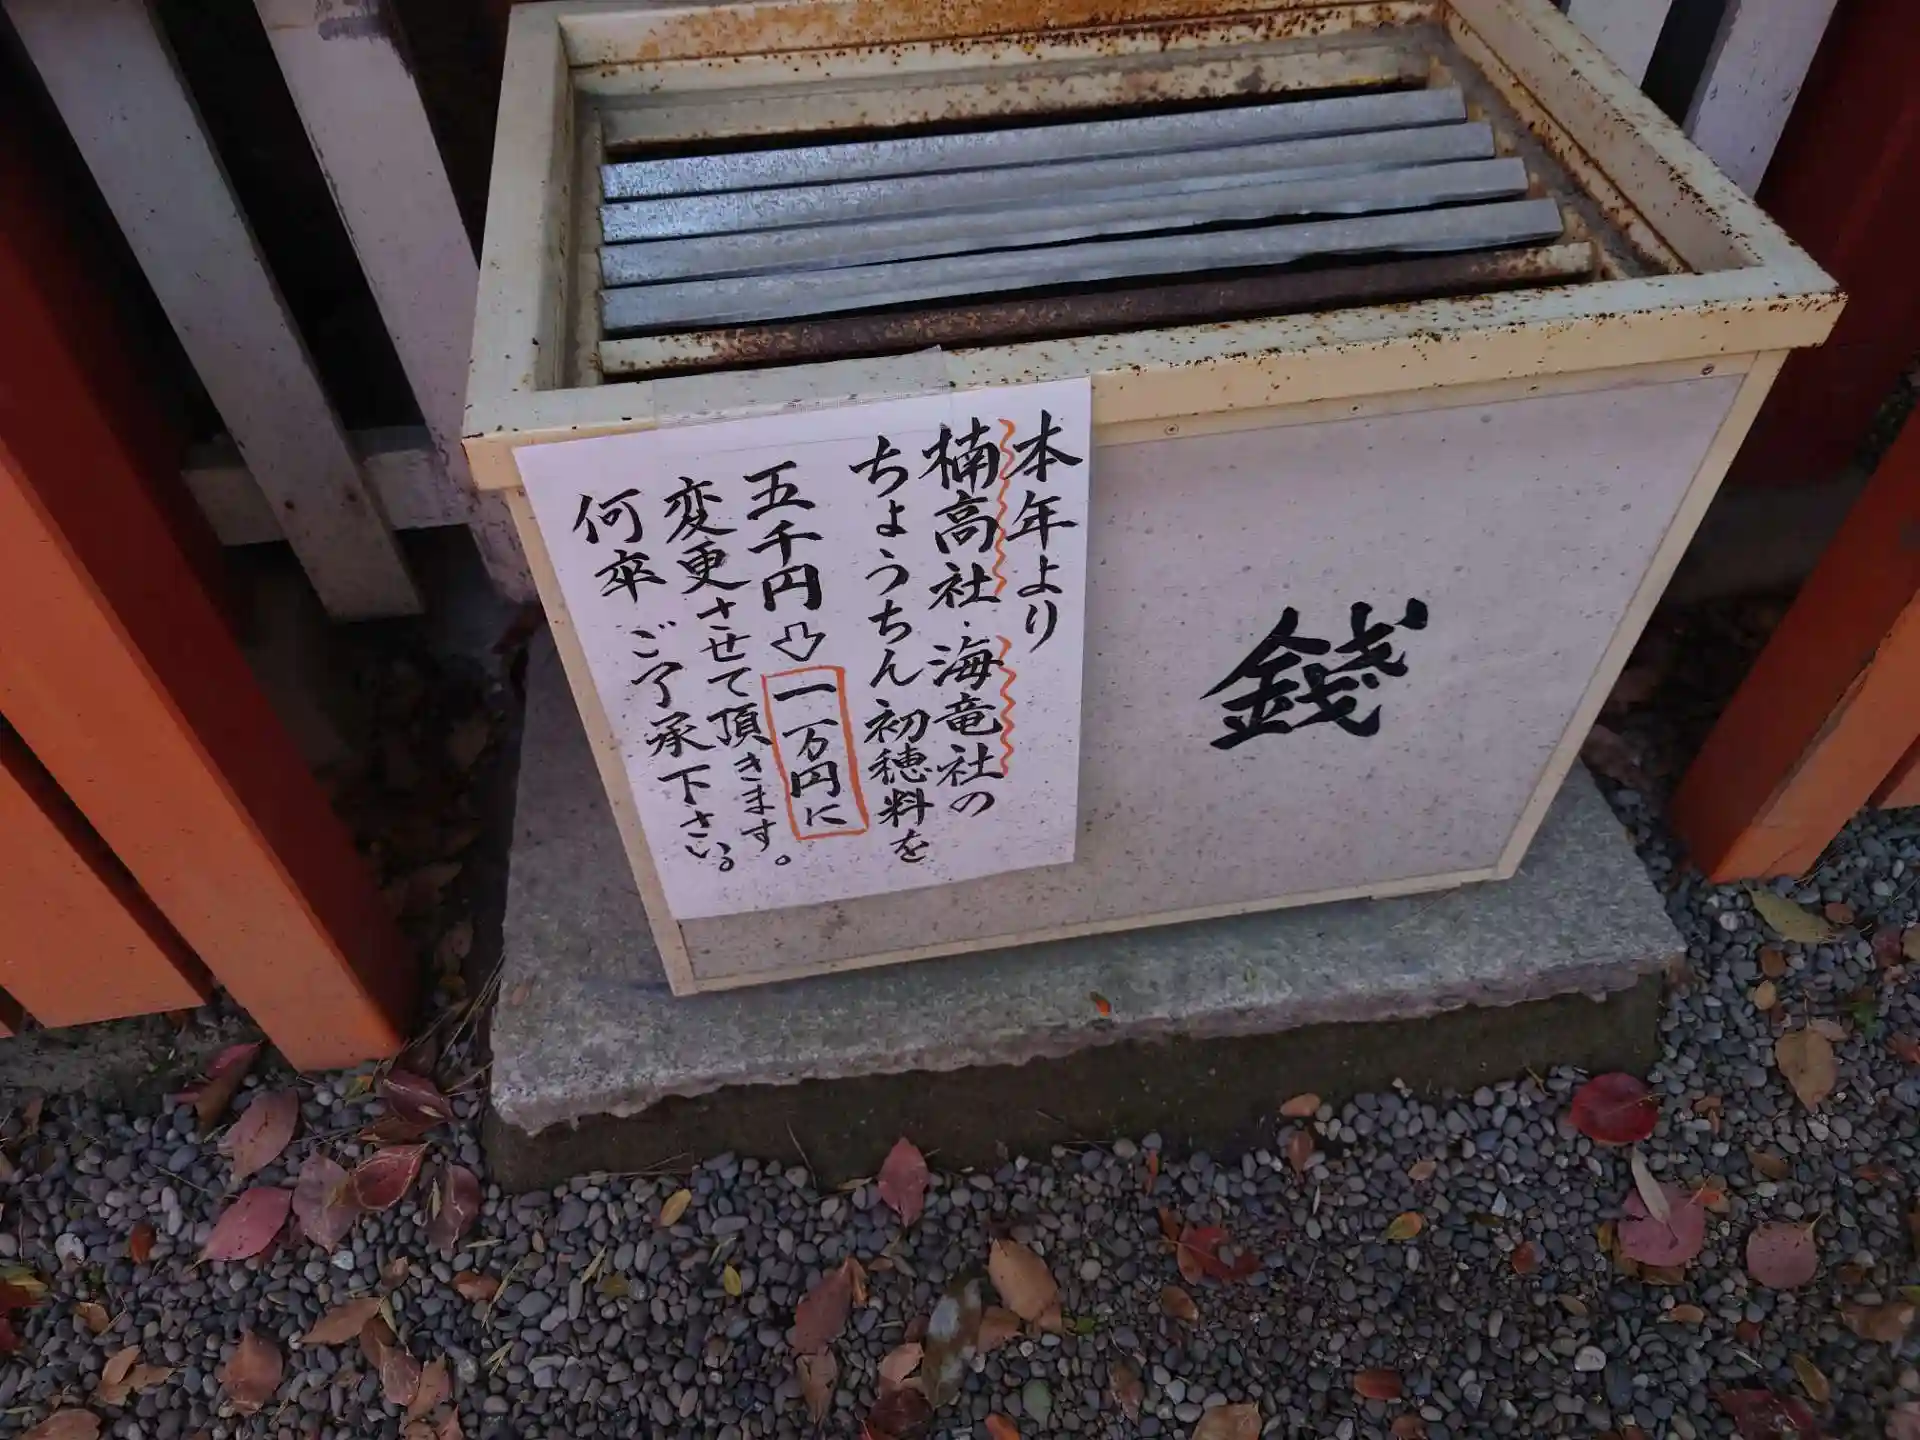 本年より
楠高社・海竜社の
ちょうちん初穂料を
五千円⇨一万円に
変更させて頂きます。
何卒ご了承下さい。
銭